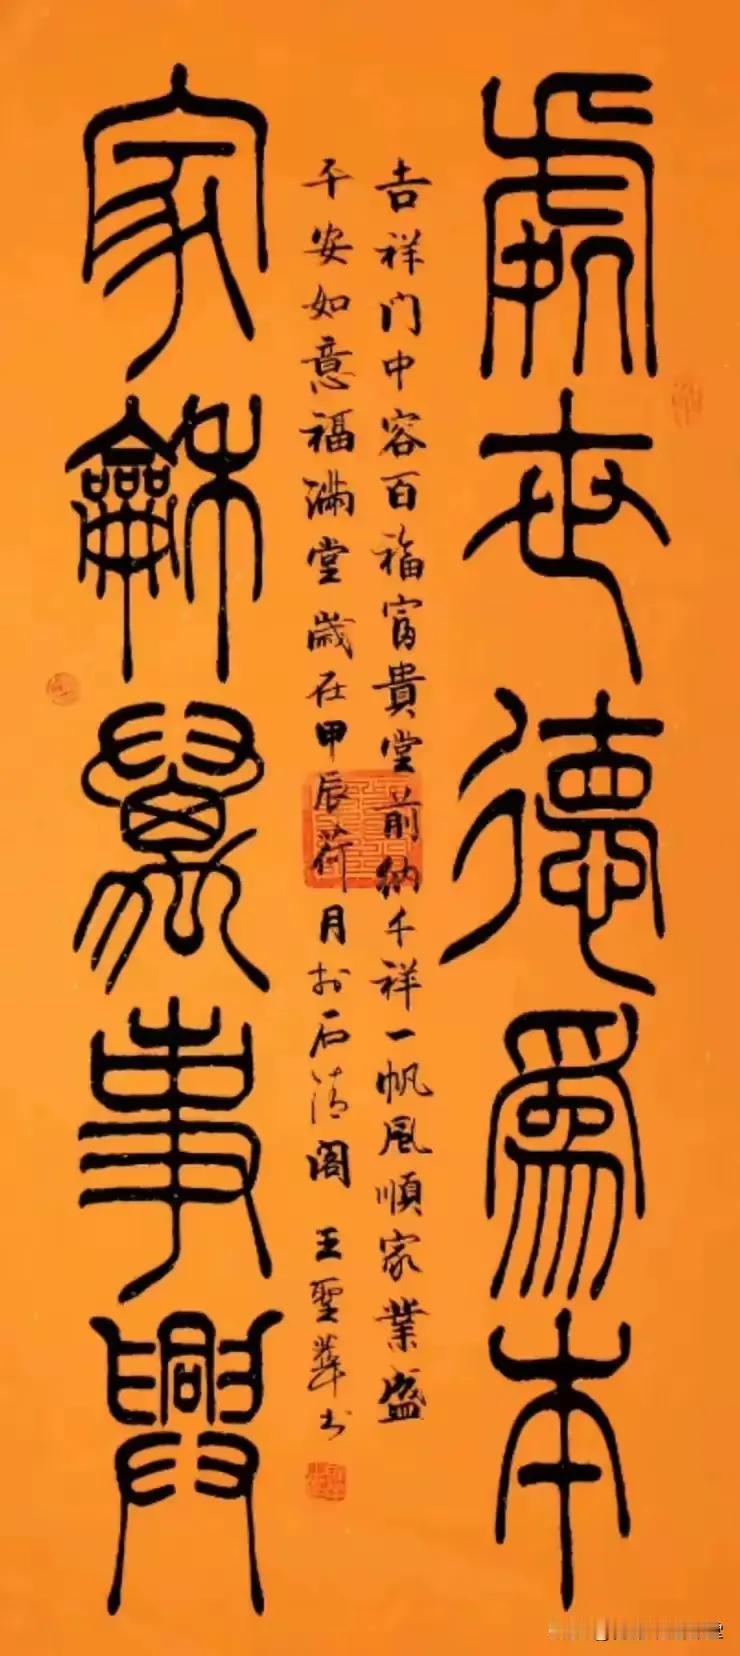 處世德為本
吉祥门中容百福富貴堂前納千祥一帆風順家業盛
平安如意福滿堂歲在甲辰荷月於石清阁 王聖華书
家龢萬事興